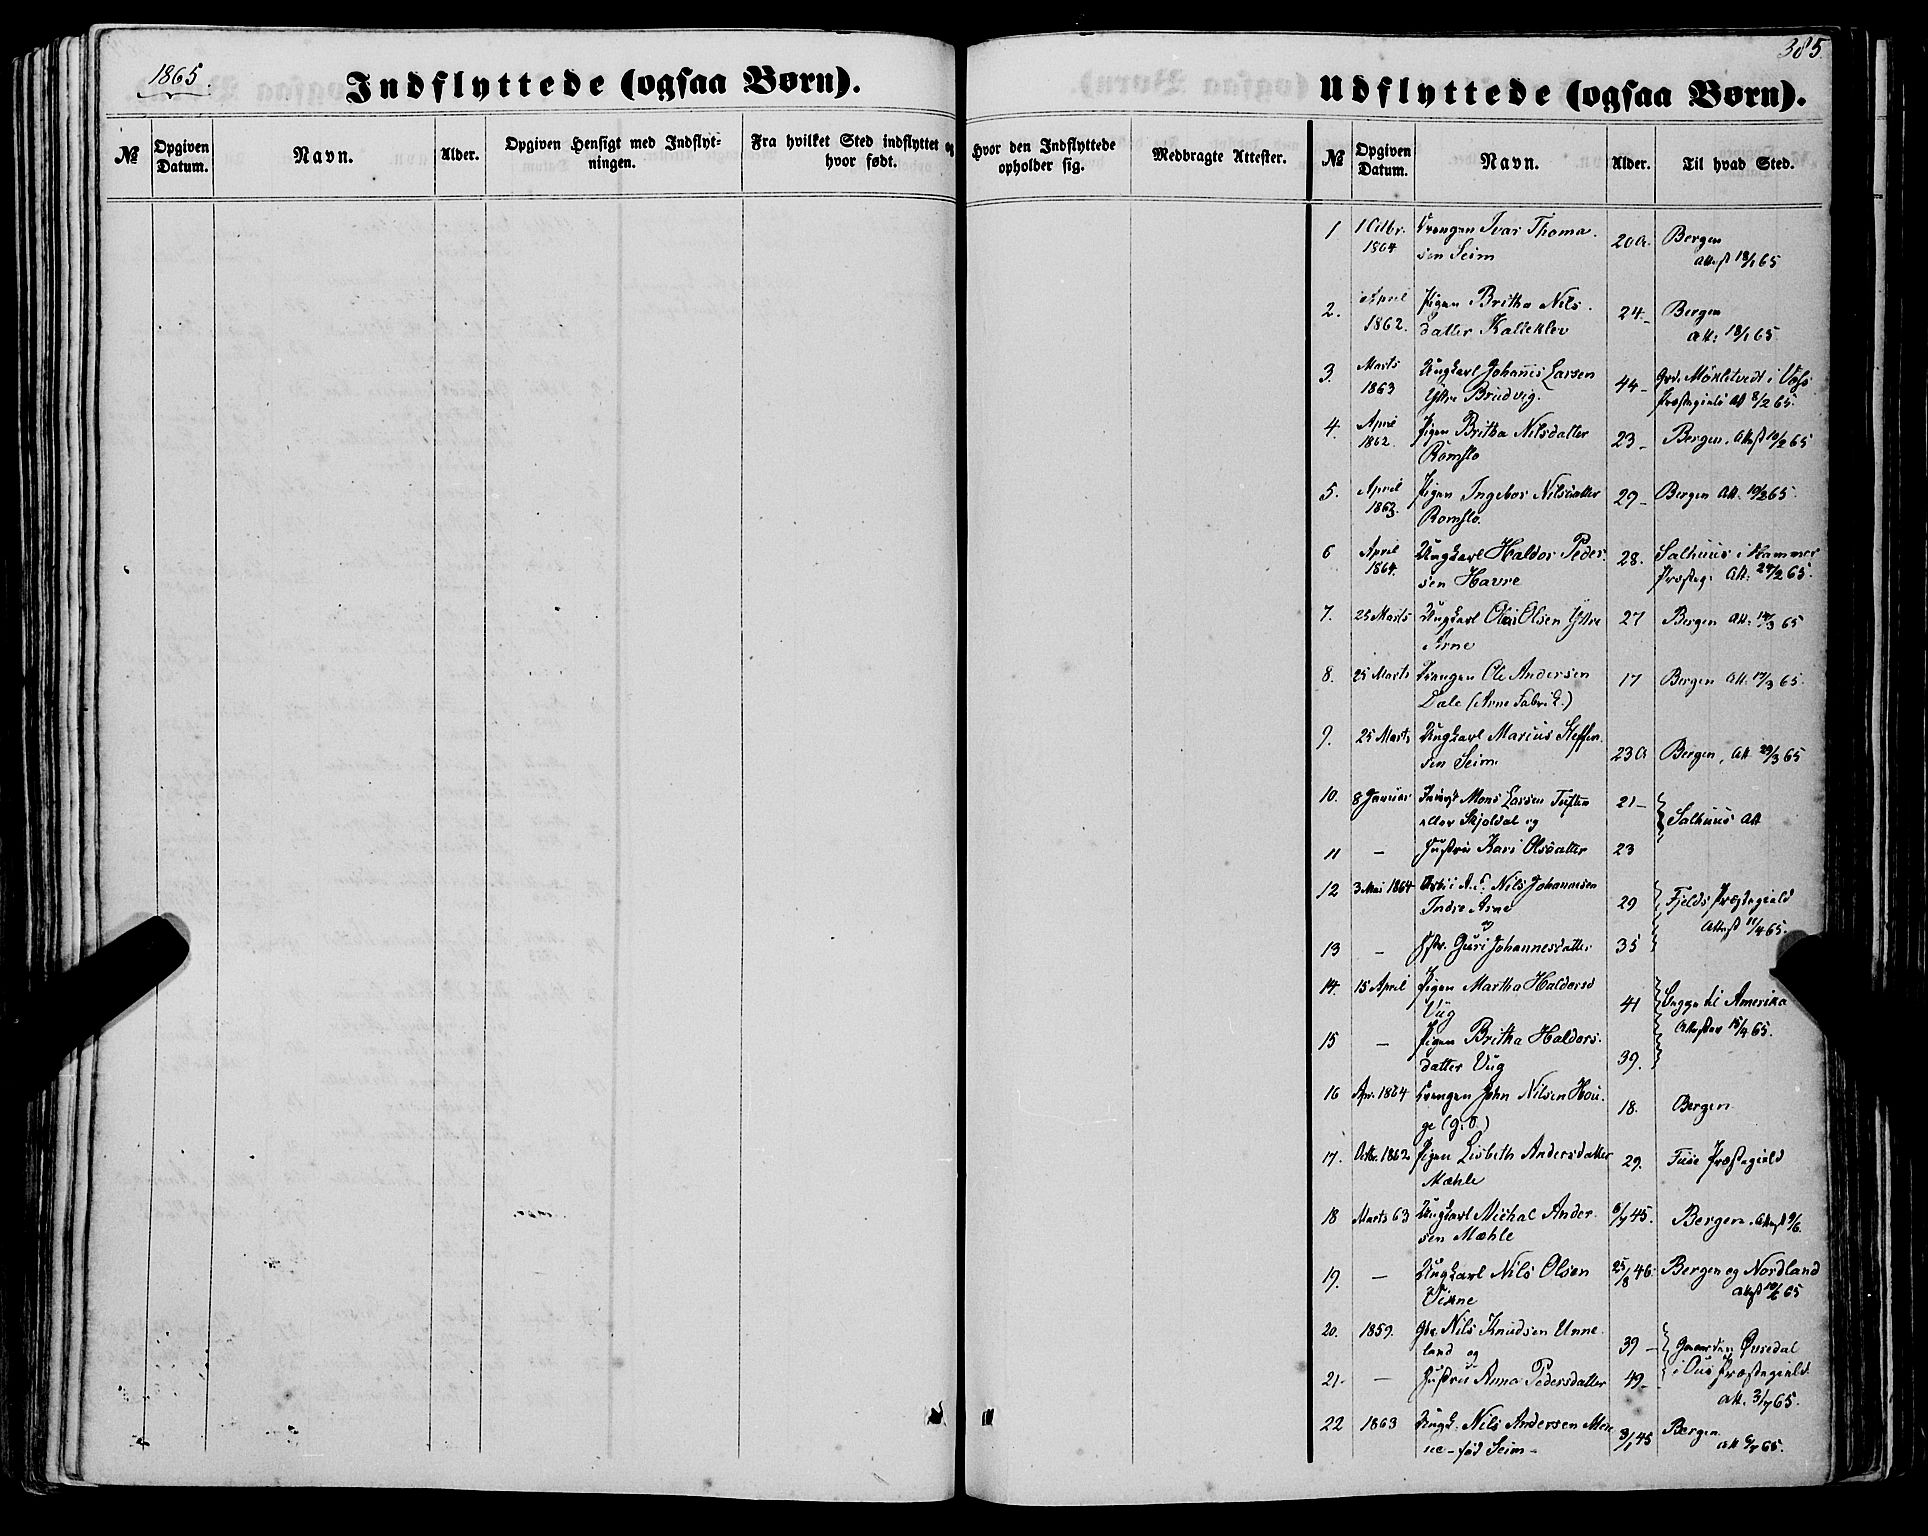 1865
Indflyttede (ogsaa Børn).
№
Opgiven Datum.
Navn.
Alder.
Opgiven Hensigt med Indflyt-
ningen.
Fra hvilket Sted indflyttet og
hvor født.
385.
Udflyttede (ogsaa Børn).
Hvor den Indflyttede
opholder sig.
Medbragte Attester.
№
Opgiven Datum.
Navn.
Alder.
Til hvad Sted.
1 1 Octbr. Drengen Ivar Thoma-
1864 sen Seim 20 A. Bergen
Attest 18/1 65
2. April Pigen Britha Nils-
1862. datter Kalleklev 24- Bergen
Att: 18/1 65
3. Marts Ungkarl Johannis Larsen
1863 Yttre Brudvig. 44- Grd. Møkletvedt i Vos
Præstegield Att 8/2 65.
4. April Pigen Britha Nilsdatter
1862 Romslo 23- Bergen. Attest 10/2 65
5. April Pigen Ingebor Nilsdatter
1863. Romslo. 29- Bergen Att. 10/2 65
6 April Ungkarl Haldor Peder-
1864. sen Havre 28. Salhuus i Hammer
Præsteg: Att: 24/2 65.
7. 25 Marts Ungkarl Olai Olsen Yttre
Arne 27 Bergen Att: 14/3 65
8. 25 Marts Drengen Ole Andersen
Dale (Arne Fabrik.) 17 Bergen Att. 17/3 65.
9. 25 Marts Ungkarl Marius Steffen-
sen Seim. 23 A Bergen, Att 29/3 65
10. 8 Januar Mons Larsen Tuften
eller Skjoldal og 21- Salhuus Att
11 - Hustru Kari Olsdatter 23
12 3 Mai 1864 Arb. i A. F. Nils Johannesen
Indre Arne 29 Fjelds Præstegield
og Attest 11/4 65.
13 - Hstr. Guri Johannesdatter 35
14. 15 April Pigen Martha Haldorsd
Vug 41 Begge til Amerika
15 - Pigen Britha Haldors- Attester 15/4 65.
datter Vug 39.
16 Apr. 1864 Drengen John Nilsen Hou-
ge 18. Bergen
17. Octbr. 1862 Pigen Lisbeth Andersdatter
Mæhle 29. Fuse Præstegield
18 Marts 63 Ungkarl Michal Ander-
sen Mæhle 6/7 45. Bergen. Attest 9/6.
19. - Ungkarl Nils Olsen
Vikne 25/8 46. Bergen og Nordland
Attest 10/6 65
20. 1859. Gbr. Nils Knudsen Unne-
land og 39- Gaarden Øvredal
21- - Hustru Anna Pedersdatter 49- i Ous Præstegield
Att. 3/7 65.
22 1863 Ungk. Nils Andersen
født Seim- 8/1 45 Bergen
Att 6/7 65.